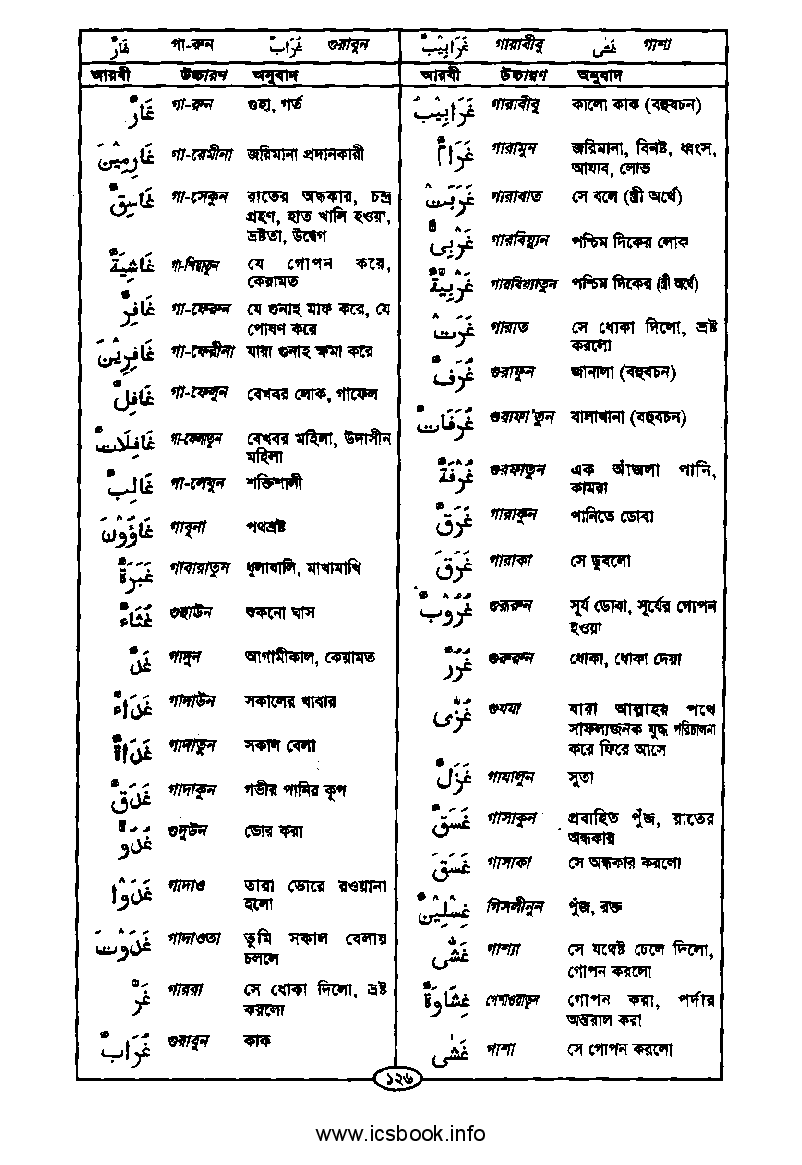 غَارٌ গা-রুন غُرَابٌ গুরাবুন
আরবী উচ্চারণ অনুবাদ
غَارٌ গা-রুন গুহা, গর্ত
غَارِمِيْنَ গা-রেমীনা জরিমানা প্রদানকারী
غَاسِقٌ গা-সেকুন রাতের অন্ধকার, চন্দ্র
গ্রহণ, হাত খালি হওয়া,
ভ্রষ্টতা, উদ্বেগ
غَاشِيَةٌ গা-শিয়াতুন যে গোপন করে,
কেয়ামত
غَافِرٌ গা-ফেরুন যে গুনাহ মাফ করে, যে
পোষণ করে
غَافِرِيْنَ গা-ফেরীনা যারা গুনাহ ক্ষমা করে
غَافِلٌ গা-ফেলুন বেখবর লোক, গাফেল
غَافِلَاتٌ গা-ফেলাতুন বেখবর মহিলা, উদাসীন
মহিলা
غَالِبٌ গা-লেবুন শক্তিশালী
غَاوُوْنَ গাবূনা পথভ্রষ্ট
غَبَرَةٌ গাবারাতুন ধূলাবালি, মাখামাখি
غُثَاءٌ গুছাউন শুকনো ঘাস
غَدٌ গাদুন আগামীকাল, কেয়ামত
غَدَاءٌ গাদাউন সকালের খাবার
غَدَاةٌ গাদাতুন সকাল বেলা
غَدَقٌ গাদাকুন গভীর পানির কূপ
غُدُوٌّ গুদুউন ভোর করা
غَدَوْا গাদাও তারা ভোরে রওয়ানা
হলো
غَدَوْتَ গাদাওতা তুমি সকাল বেলায়
চললে
غَرَّ গাররা সে ধোকা দিলো, ভ্রষ্ট
করলো
غُرَابٌ গুরাবুন কাক
غَرَابِيْبُ গারাবীবু غَشّٰى গাশা
আরবী উচ্চারণ অনুবাদ
غَرَابِيْبُ গারাবীবু কালো কাক (বহুবচন)
غَرَامٌ গারামুন জরিমানা, বিনষ্ট, ধ্বংস,
আযাব, লোভ
غَرَبَتْ গারাবাত সে বলে (স্ত্রী অর্থে)
غَرْبِىٌّ গারবিয়্যুন পশ্চিম দিকের লোক
غَرْبِيَّةٌ গারবিয়্যাতুন পশ্চিম দিকের (স্ত্রী অর্থে)
غَرَّتْ গারাত সে ধোকা দিলো, ভ্রষ্ট
করলো
غُرَفٌ গুরাফুন জানালা (বহুবচন)
غُرُفَاتٌ গুরাফা'তুন বালাখানা (বহুবচন)
غُرْفَةٌ গুরফাতুন এক আঁজলা পানি,
কামরা
غَرَقٌ গারাকুন পানিতে ডোবা
غَرَقَ গারাকা সে ডুবলো
غُرُوْبٌ গুরূবুন সূর্য ডোবা, সূর্যের গোপন
হওয়া
غُرُرٌ গুরুরুন ধোকা, ধোকা দেয়া
غُزًّى গুযযা যারা আল্লাহর পথে
সাফল্যজনক যুদ্ধ পরিচালনা
করে ফিরে আসে
غَزْلٌ গাযালুন সুতা
غَسَقٌ গাসাকুন প্রবাহিত পুঁজ, রাতের
অন্ধকার
غَسَقَ গাসাকা সে অন্ধকার করলো
غِسْلِيْنٌ গিসলীনুন পুঁজ, রক্ত
غَشّٰى গাশ্যা সে যথেষ্ট ঢেলে দিলো,
গোপন করলো
غِشَاوَةٌ গেশাওয়াতুন গোপন করা, পর্দার
অন্তরাল করা
غَشٰى গাশা সে গোপন করলো
১২৬
www.icsbook.info